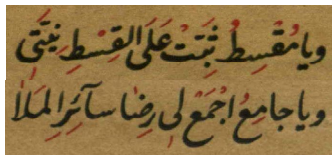 وَيَا مُقْسِطُ ثَبِّتْ عَلَى القِسْطِ نِيَّتِي
وَيَا جَامِعُ اجْمَعْ لِي رِضَا سَآئِرِ المَلَا